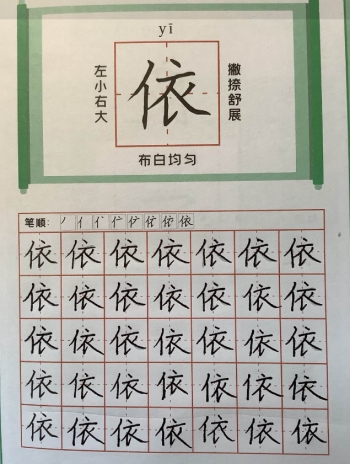 yī
左小右大
依
撇捺舒展
布白均匀
笔顺:
依依依依依依依
依依依依依依依
依依依依依依依
依依依依依依依
依依依依依依依